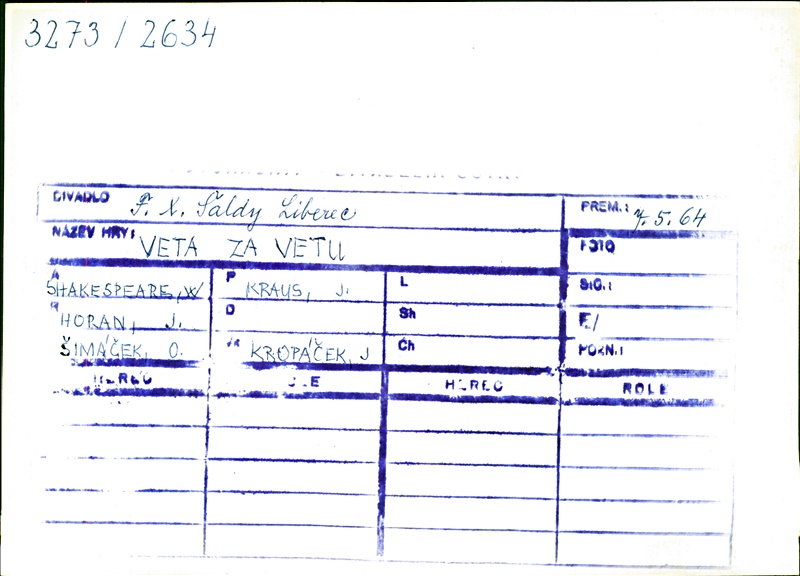 3273 / 2634
DIVADLO F. X. Šaldy Liberec PREM.: 7. 5. 64
NÁZEV HRY: VETA ZA VETU FOTO
A SHAKESPEARE, W P KRAUS, J. L SIG.:
R HORAN, J. D Sh E/
ŠIMÁČEK, O. KROPÁČEK, J Ch POZN.:
HEREC HEREC ROLE